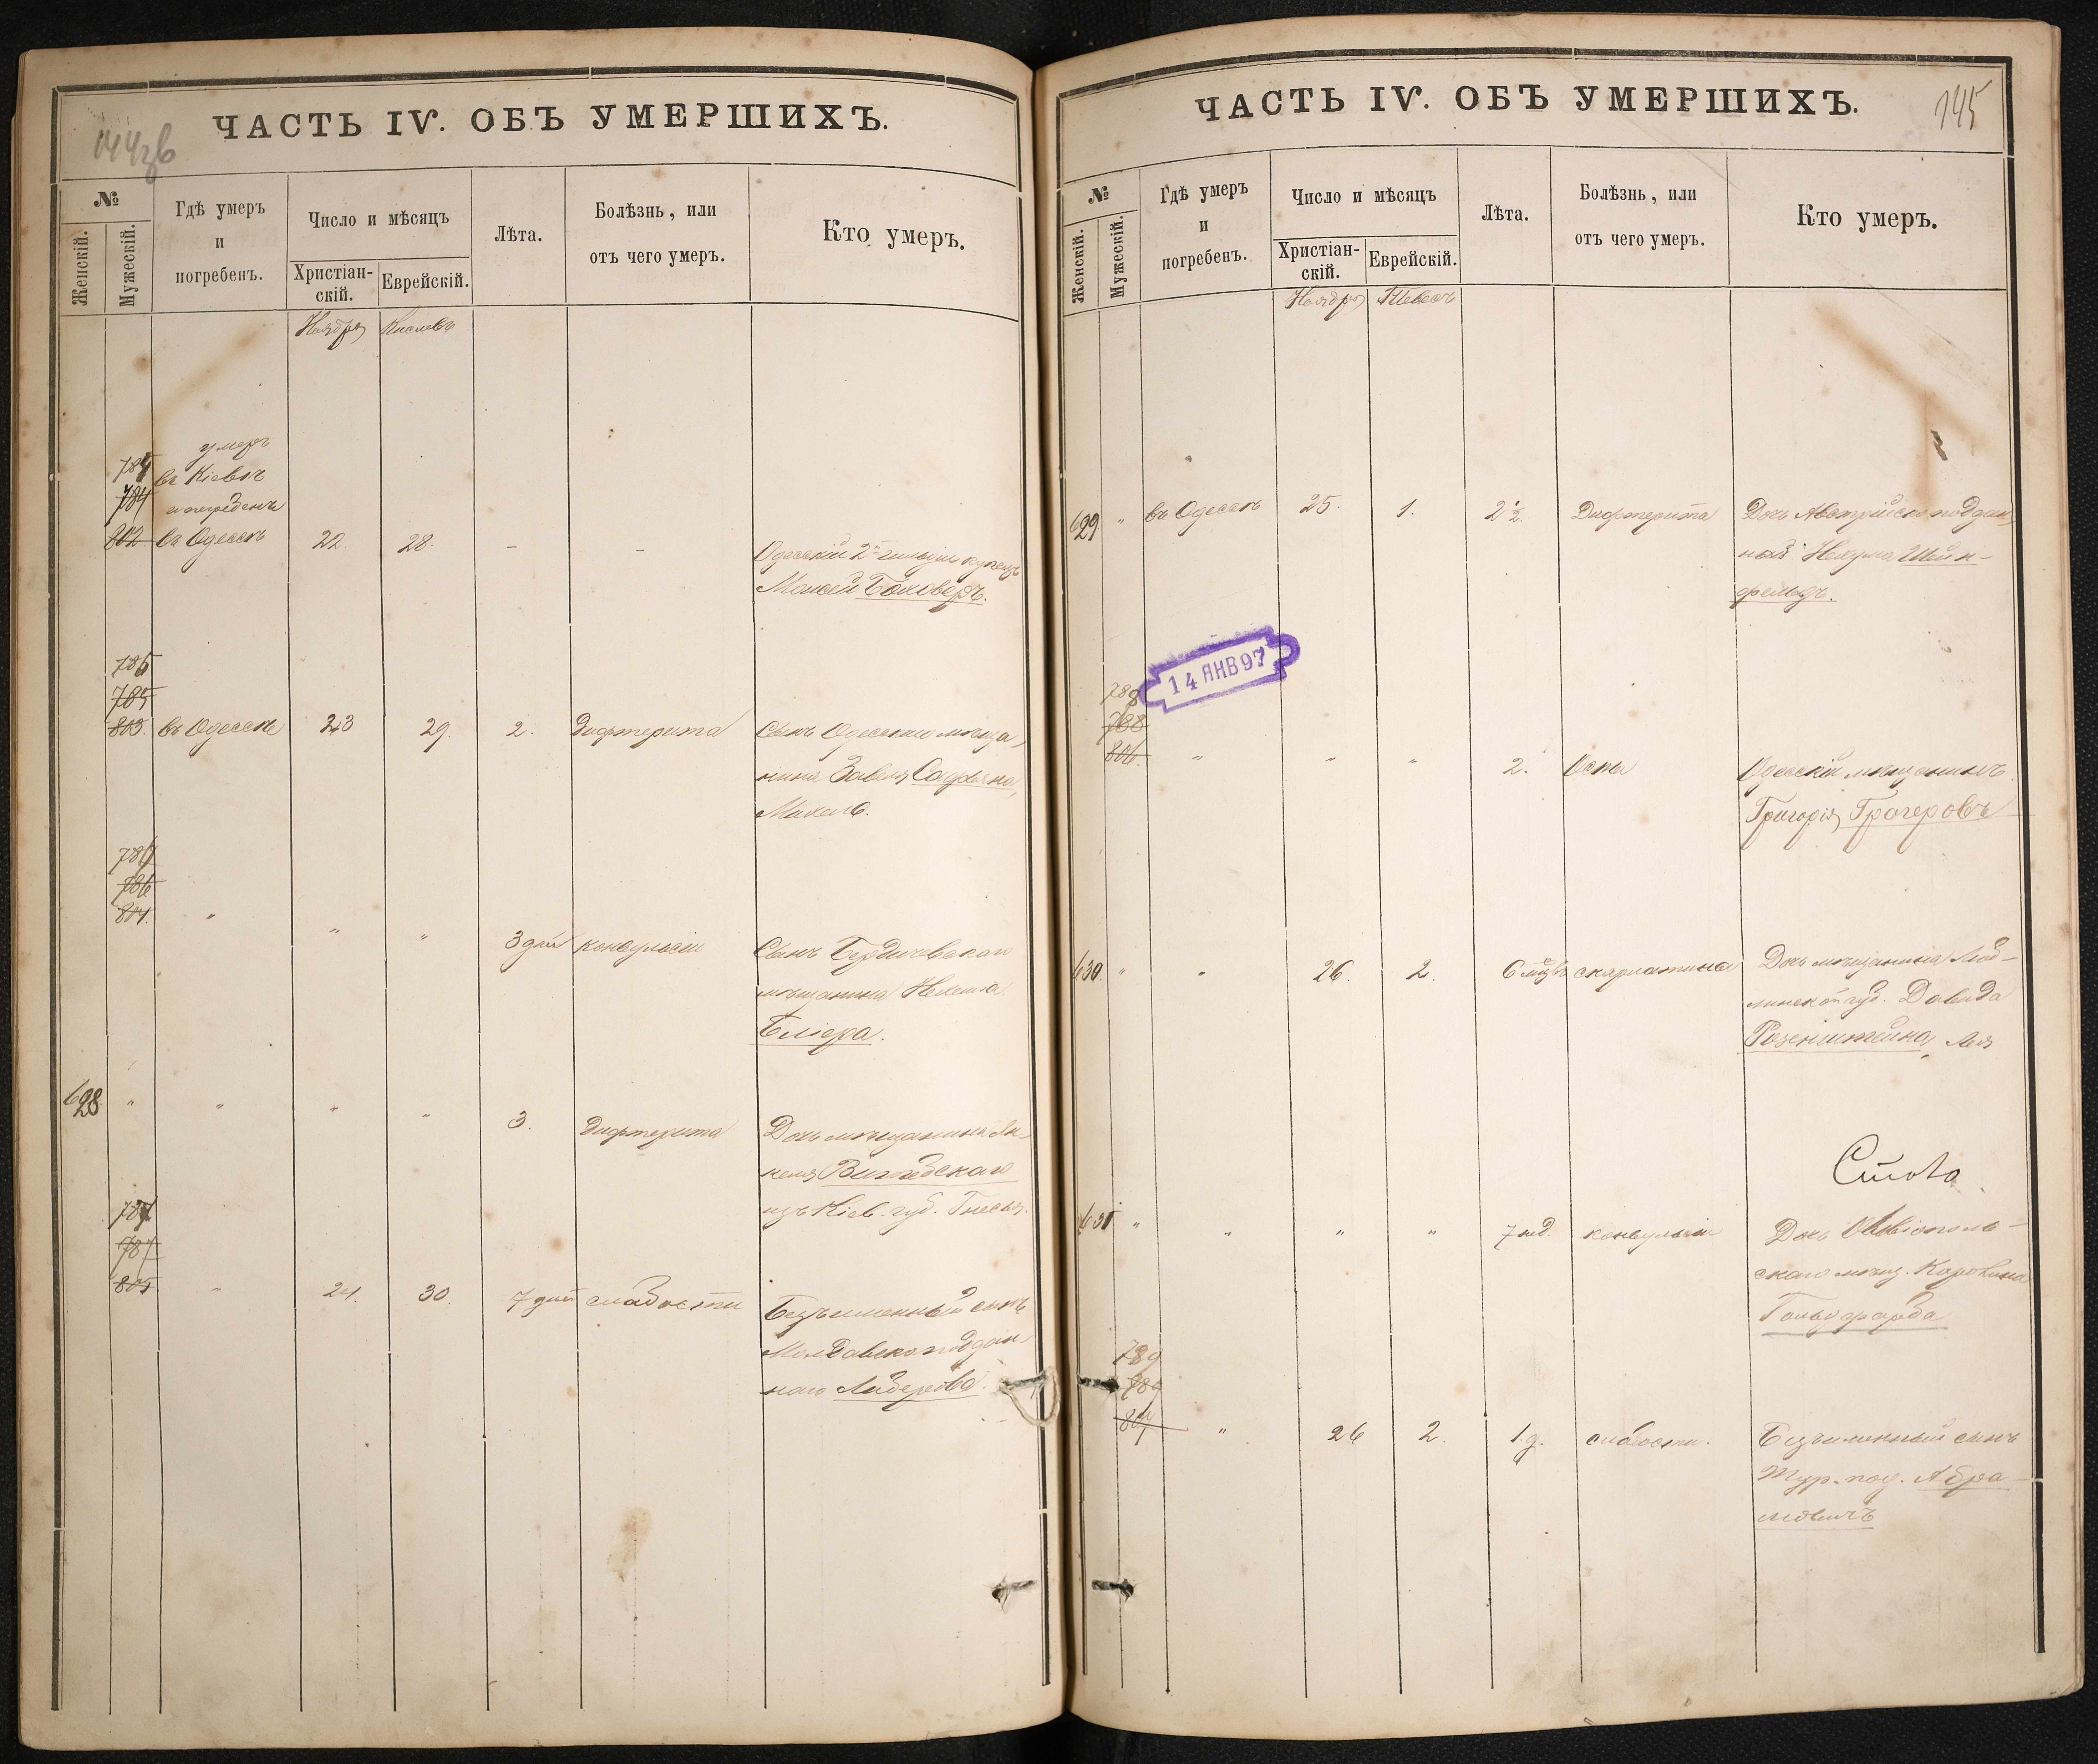 144зв
ЧАСТЬ IV. ОБЪ УМЕРШИХЪ.
№
Женскій.
Мужескій.
Гдѣ умеръ
и
погребенъ.
Число и мѣсяцъ
Христіан-
скій.
Еврейскій.
Лѣта.
Болѣзнь, или
отъ чего умеръ.
Кто умеръ.
Ноября Кислевъ
умеръ
въ Кіевѣ
784
и погребенъ
802 въ Одессѣ 22 28. - -
Одесскій 2й гильдіи купецъ
Моисей Боховеръ.
785
803. въ Одессѣ 23 29. 2. Дифтерита
Сынъ Одесскаго мѣща-
нина Завеля Сафьяна,
Михель.
786
804. " " " 3 дней конвульсіи
Сынъ Бердичевскаго
мѣщанина
Бліера.
628 " " " " 3. Дифтерита
Дочь мѣщанина Ян-
келя
изъ Кіев. губ. Гнесья.
787
805 " 24. 30. 7 дней слабости
Безъименный сынъ
Молдавскоподдан-
наго
145
ЧАСТЬ IV. ОБЪ УМЕРШИХЪ.
№
Женскій.
Мужескій.
Гдѣ умеръ
и
погребенъ.
Число и мѣсяцъ
Христіан-
скій.
Еврейскій.
Лѣта.
Болѣзнь, или
отъ чего умеръ.
Кто умеръ.
Ноября Тевесъ
629 " въ Одессѣ 25. 1. 2½ Дифтерита
Дочь Австрійско поддан-
наго Нахума Шейн-
фельдъ.
14 ЯНВ 97
788
806. " " " 2. Оспы
Одесскій мѣщанинъ
Григорія Трагеровъ
630 " " 26. 2. 6 мѣс. скарлатина
Дочь мѣщанина Люб-
линской губ. Давида
Розенштейна, Лея
631 " " " " 7 нед. конвульсіи
Дочь Овидіополь-
скаго мѣщ.
Гольдфарба
789
807 " 26 2. 1.д. слабости.
Безъименный сынъ
Тур. под. Абра-
мовичъ